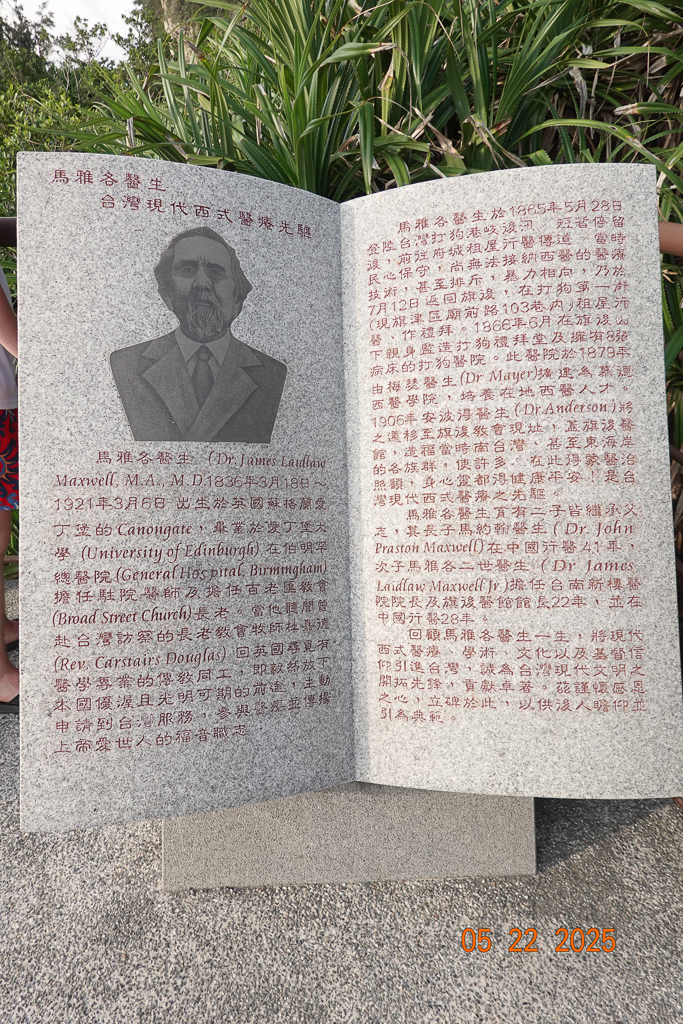 馬雅各醫生
台灣現代西式醫療先驅
馬雅各醫生 (Dr. James Laidlaw
Maxwell, M.A., M.D.1836年3月18日~
1921年3月6日 出生於英國蘇格蘭愛
丁堡的Canongate，畢業於愛丁堡大
學 (University of Edinburgh) 在伯明罕
總醫院(General Hospital, Birmingham)
擔任駐院醫師及擔任百老匯教會
(Broad Street Church)長老。當他聽聞曾
赴台灣訪察的長老教會牧師杜嘉德
(Rev. Carstairs Douglas) 回英國尋覓有
醫學專業的傳教同工，即毅然放下
本國優渥且光明可期的前途，主動
申請到台灣服務，參與醫療並傳揚
上帝愛世人的福音職志
馬雅各醫生於1865年5月28日
登陸台灣打狗港岐後汛，短暫停留
後，前往府城租屋行醫傳道。當時
民心保守，尚無法接納西醫的醫療
技術，甚至排斥，暴力相向，乃於
7月12日返回旗後，在打狗第一街
(現旗津區廟前路103巷內)租屋行
醫、作禮拜。1866年6月在旗後山
下親身監造打狗禮拜堂及擁有8張
病床的打狗醫院。此醫院於1879年
由梅醫生(Dr Mayer)擴建為慕德
西醫學院，培養在地西醫人才。
1906年安波得醫生(Dr.Anderson)將
之遷移至旗後教會現址，蓋旗後醫
館，造福當時南台灣，甚至東海岸
的各族群，使許多，在此得蒙醫治
照顧，身心靈都得健康平安！是台
灣現代西式醫療之先驅。
馬雅各醫生育有二子皆繼承父
志，其長子馬約翰醫生(Dr. John
Praston Maxwell)在中國行醫41年，
次子馬雅各二世醫生 (Dr. James
Laidlaw Maxwell Jr.)擔任台南新樓醫
院院長及旗後醫館館長22年，並在
中國行醫28年。
回顧馬雅各醫生一生，將現代
西式醫療、學術、文化以及基督信
仰引進台灣，誠為台灣現代文明之
開拓先鋒，貢獻卓著。茲謹懷感恩
之心，立碑於此，以供後人瞻仰並
引為典範。
05 22 2025